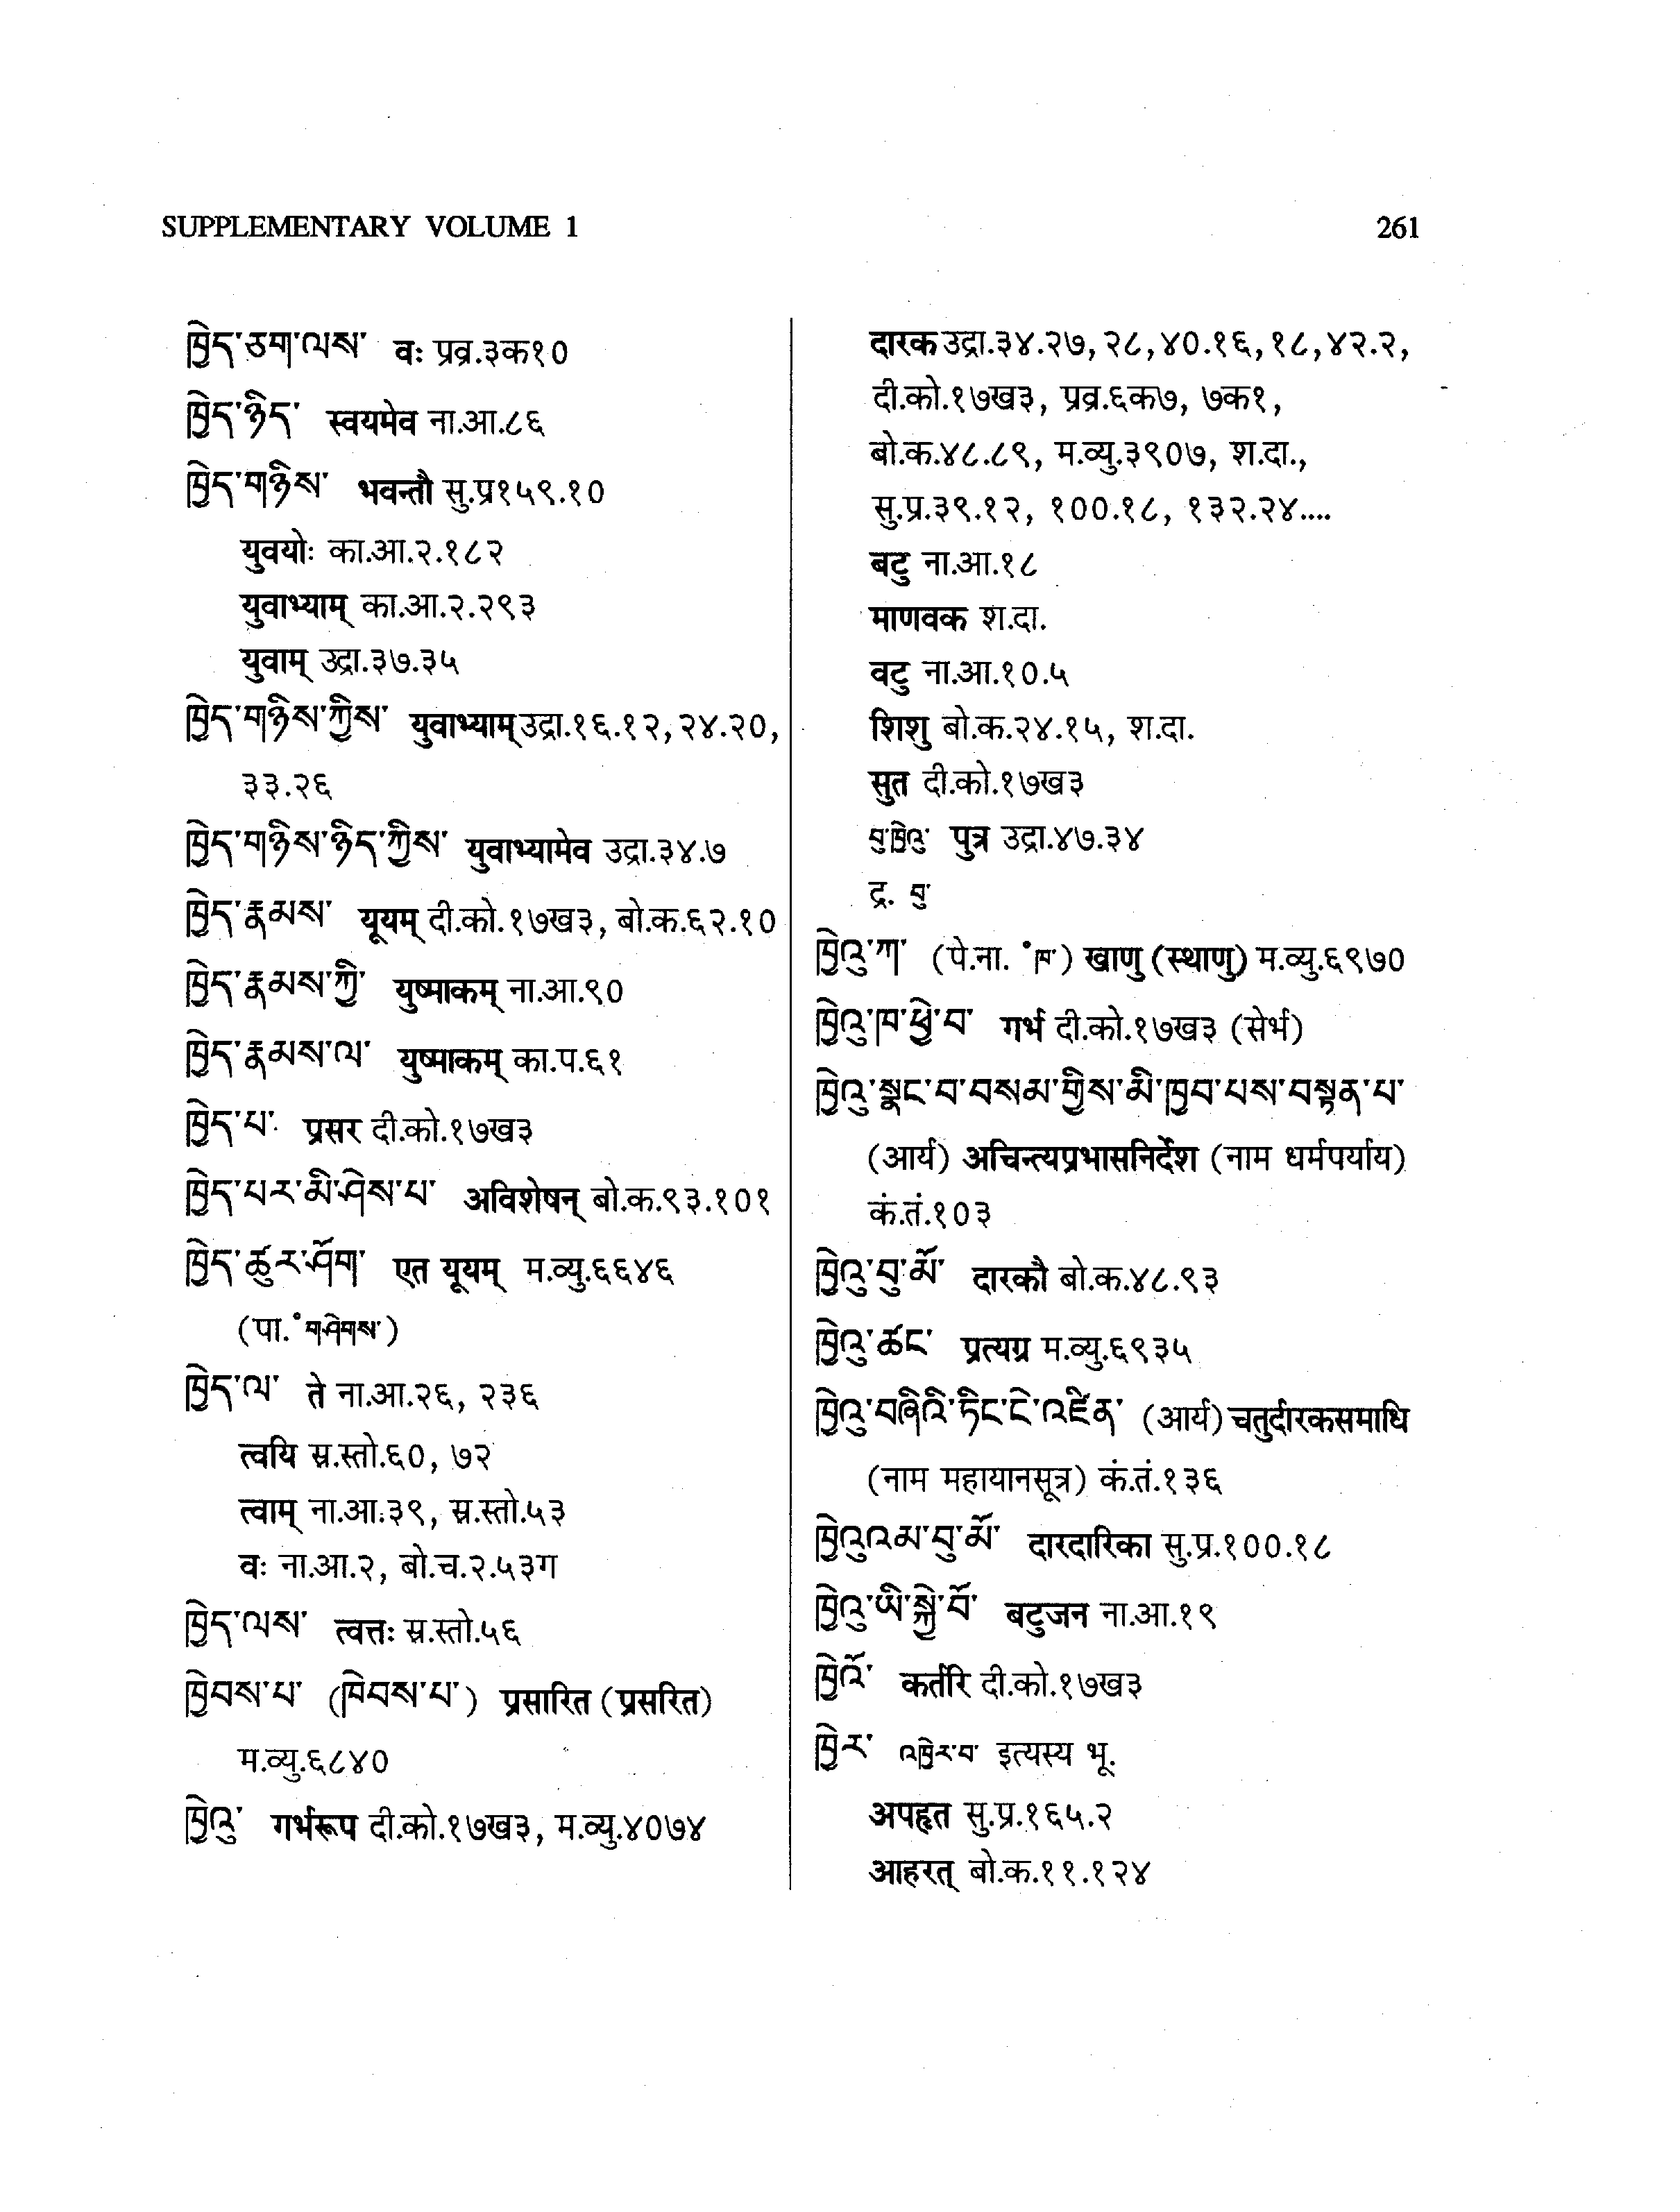 SUPPLEMENTARY VOLUME 1
261
ཁྱེད་ཅག་ལས་ वः प्रव्र.३क१०
ཁྱེད་ཉིད་ स्वयमेव ना.आ.८६
ཁྱེད་གཉིས་ भवन्तौ सु.प्र१५९.१०
युवयोः का.आ.२.१८२
युवाभ्याम् का.आ.२.२९३
युवाम् उद्रा.३७.३५
ཁྱེད་གཉིས་ཀྱིས་ युवाभ्याम् उद्रा.१६.१२, २४.२०,
३३.२६
ཁྱེད་གཉིས་ཉིད་ཀྱིས་ युवाभ्यामेव उद्रा.३४.७
ཁྱེད་རྣམས་ यूयम् दी.को.१७ख३, बो.क.६२.१०
ཁྱེད་རྣམས་ཀྱི་ युष्माकम् ना.आ.९०
ཁྱེད་རྣམས་ལ་ युष्माकम् का.प.६१
ཁྱེད་པ་ प्रसर दी.को.१७ख३
ཁྱེད་པར་མི་ཤེས་པ་ अविशेषन् बो.क.९३.१०१
ཁྱེད་ཚུར་ཤོག་ एत यूयम् म.व्यु.६६४६
(पा. ॰གཤེགས་)
ཁྱེད་ལ་ ते ना.आ.२६, २३६
त्वयि स्र.स्तो.६०, ७२
त्वाम् ना.आ.३९, स्र.स्तो.५३
वः ना.आ.२, बो.च.२.५३ग
ཁྱེད་ལས་ त्वत्तः स्र.स्तो.५६
ཁྱེབས་པ་ (ཁེབས་པ་) प्रसारित (प्रसरित)
म.व्यु.६८४०
ཁྱེའུ་ गर्भरूप दी.को.१७ख३, म.व्यु.४०७४
दारक उद्रा.३४.२७, २८, ४०.१६, १८, ४२.२,
दी.को.१७ख३, प्रव्र.६क७, ७क१,
बो.क.४८.८९, म.व्यु.३९०७, श.दा.,
सु.प्र.३९.१२, १००.१८, १३२.२४....
बटु ना.आ.१८
माणवक श.दा.
वटु ना.आ.१०.५
शिशु बो.क.२४.१५, श.दा.
सुत दी.को.१७ख३
བུ་ཁྱེའུ་ पुत्र उद्रा.४७.३४
द्र. བུ་
ཁྱེའུ་ཀ་ (पे.ना. ॰ཁ་) खाणु (स्थाणु) म.व्यु.६९७०
ཁྱེའུ་ཁ་ཕྱེ་བ་ गर्भ दी.को.१७ख३ (सेर्भ)
ཁྱེའུ་སྣང་བ་བསམ་གྱིས་མི་ཁྱབ་པས་བསྟན་པ་
(आर्य) अचिन्त्यप्रभासनिर्देश (नाम धर्मपर्याय)
कं.तं.१०३
ཁྱེའུ་བུ་མོ་ दारकौ बो.क.४८.९३
ཁྱེའུ་ཚང་ प्रत्यग्र म.व्यु.६९३५
ཁྱེའུ་བཞིའི་ཏིང་ངེ་འཛིན་ (आर्य) चतुर्दारकसमाधि
(नाम महायानसूत्र) कं.तं.१३६
ཁྱེའུའམ་བུ་མོ་ दारदारिका सु.प्र.१००.१८
ཁྱེའུ་ཡི་སྐྱེ་བོ་ बटुजन ना.आ.१९
ཁྱེའོ་ कर्तरि दी.को.१७ख३
ཁྱེར་ འཁྱེར་བ་ इत्यस्य भू.
अपहृत सु.प्र.१६५.२
आहरत् बो.क.११.१२४